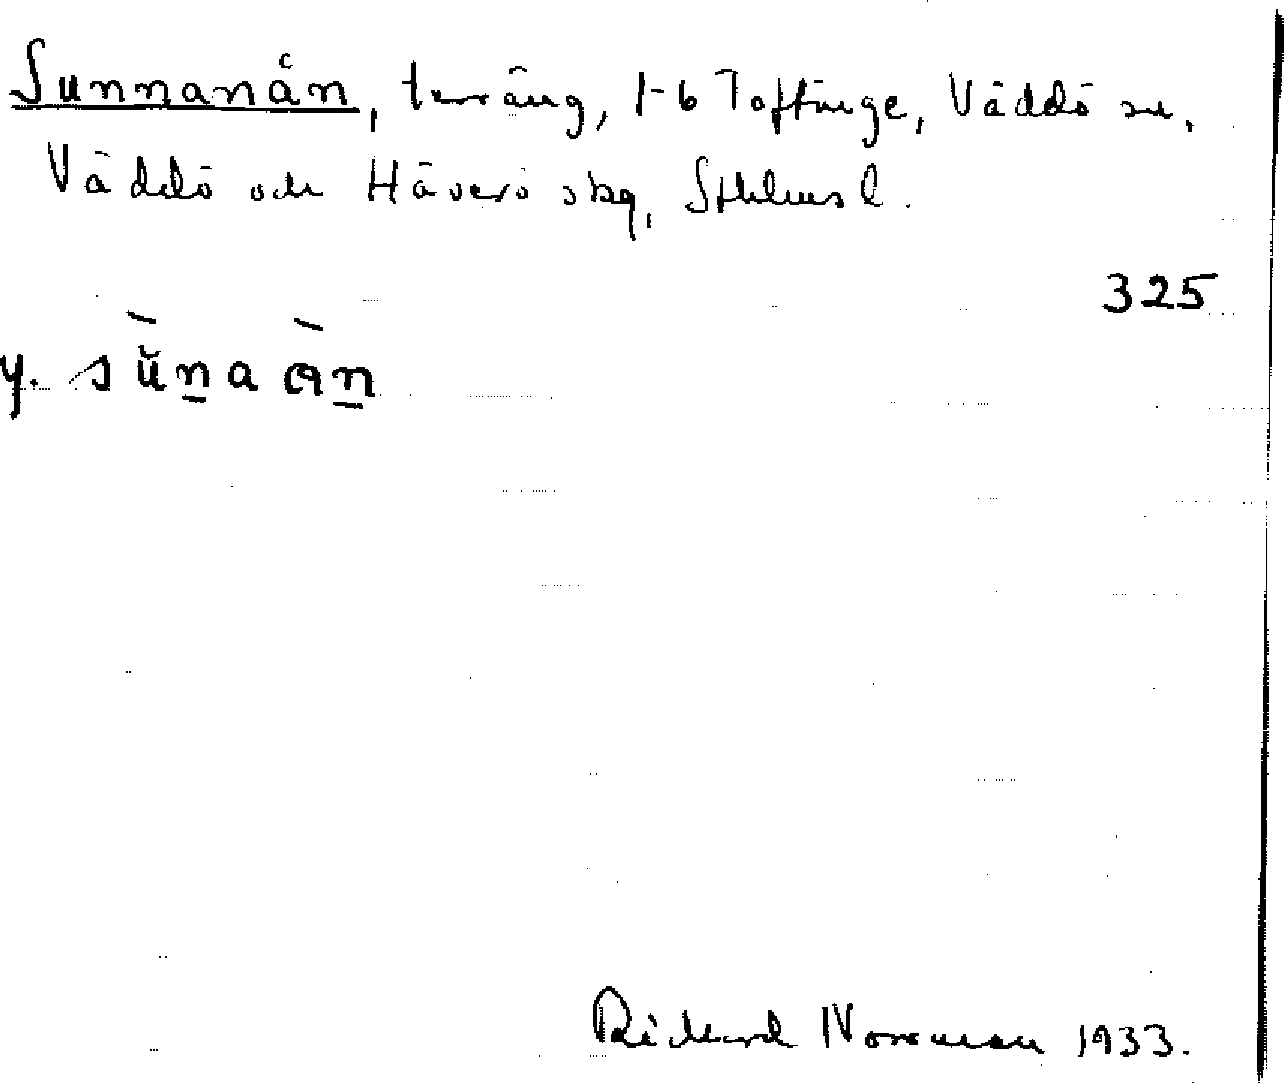 Sunnanån, terräng, 1-6 Toftinge, Väddö sn,
Väddö och Häverö skg, Sthlms l.
325
y. sŭ̀na ꭤ̀n
Richard Norrman 1933.